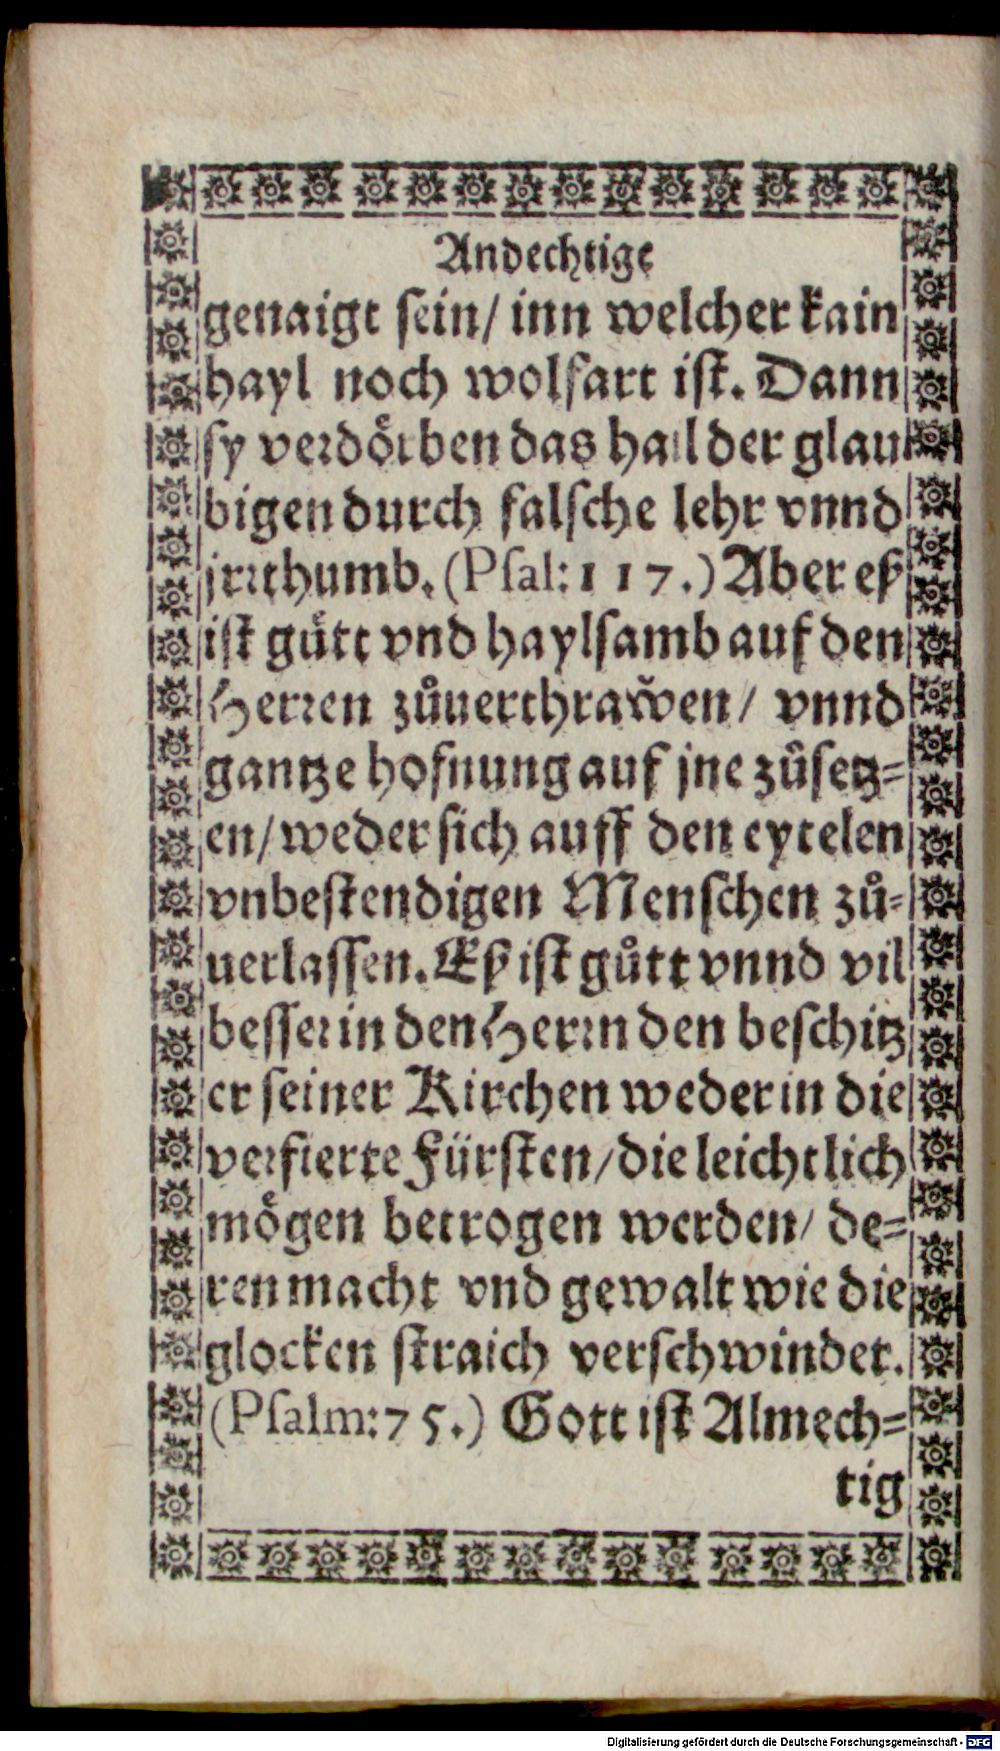 Andechtige
genaigt sein/ inn welcher kain
hayl noch wolfart ist. Dann
sy verdoͤrben das hail der glau
bigen durch falsche lehr vnnd
jrrthumb. (Psal: 117.) Aber eß
ist guͤtt vnd haylsamb auf den
Herren zůuerthraw̌en/ vnnd
gantze hofnung auf jne zůsetz=
en/ weder sich auff den eytelen
vnbestendigen Menschen zů=
uerlassen. Eß ist gůtt vnnd vil
besser in den Herrn den beschitz
er seiner Kirchen weder in die
verfierte Fürsten/ die leichtlich
moͤgen betrogen werden/ de=
ren macht vnd gewalt wie die
glocken straich verschwindet.
(Psalm: 75.) Gott ist Almech=
tig
Digitalisierung gefördert durch die Deutsche Forschungsgemeinschaft - DFG